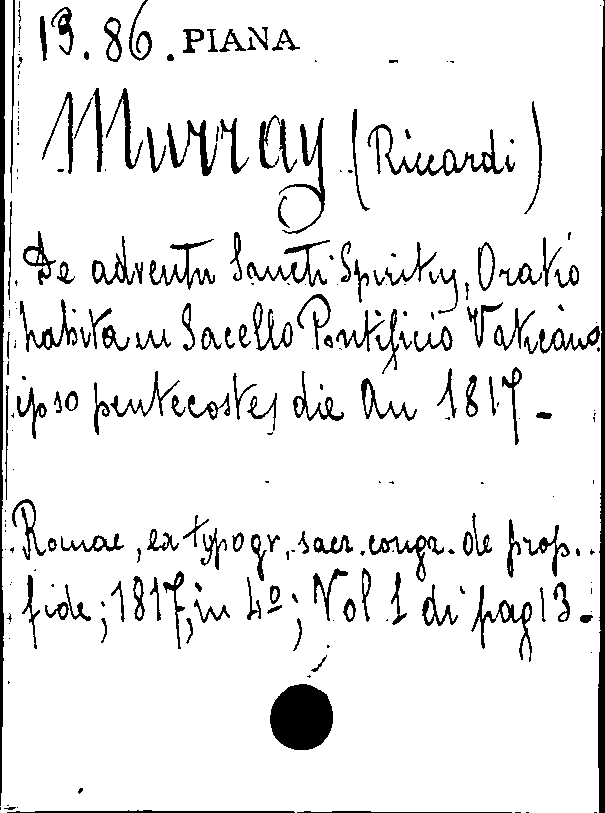 13.86. PIANA
Murray (Riccardi)
De adventu Sancti Spiritus, Oratio
habita in Sacello Pontificio Vaticano
ipso pentecostes die An 1817 -
Romae, ex typogr, sacr. congr. de prop.
fide; 1817; in 4º; Vol 1 di pag 13 -